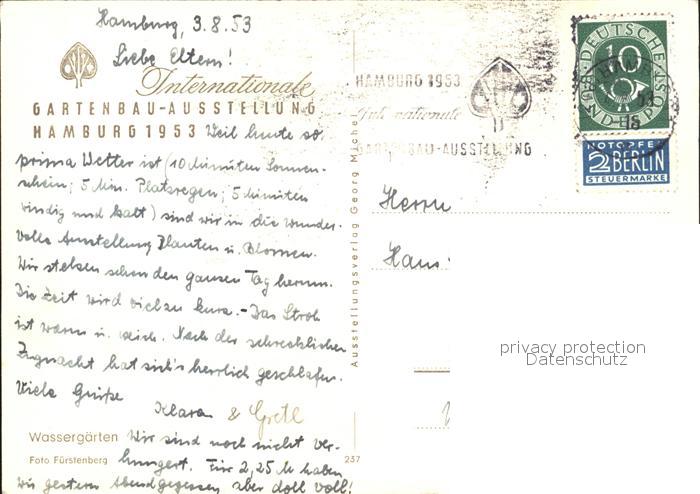 Hamburg, 3.8.53
Liebe Eltern!
Internationale
GARTENBAU-AUSSTELLUNG
HAMBURG 1953 Weil heute so
prima Wetter ist (10 Minuten Sonnen-
schein; 5 Min. Platzregen; 5 Minuten
windig und kalt) sind wir in die wunder-
volle Ausstellung Planten u. Blomen.
Wir stelzen schon den ganzen Tag herum.
Die Zeit wird viel zu kurz. - Das Stroh
ist warm u. weich. Nach der schrecklichen
Zugnacht hat sich's herrlich geschlafen.
Viele Grüße
Klara & Gretl
Wassergärten Wir sind noch nicht ver-
Foto Fürstenberg hungert. Für 2,25 M haben
wir gestern Abend gegessen, aber doll voll!
237
Ausstellungsverlag Georg Michel
HAMBURG 1953
Internationale
GARTENBAU-AUSSTELLUNG
DEUTSCHE
BUNDESPOST
10
NOTOPFER
2 BERLIN
STEUERMARKE
Herrn
Hans
privacy protection
Datenschutz